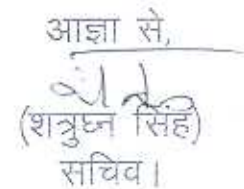 आज्ञा से,
(शत्रुघ्न सिंह)
सचिव।